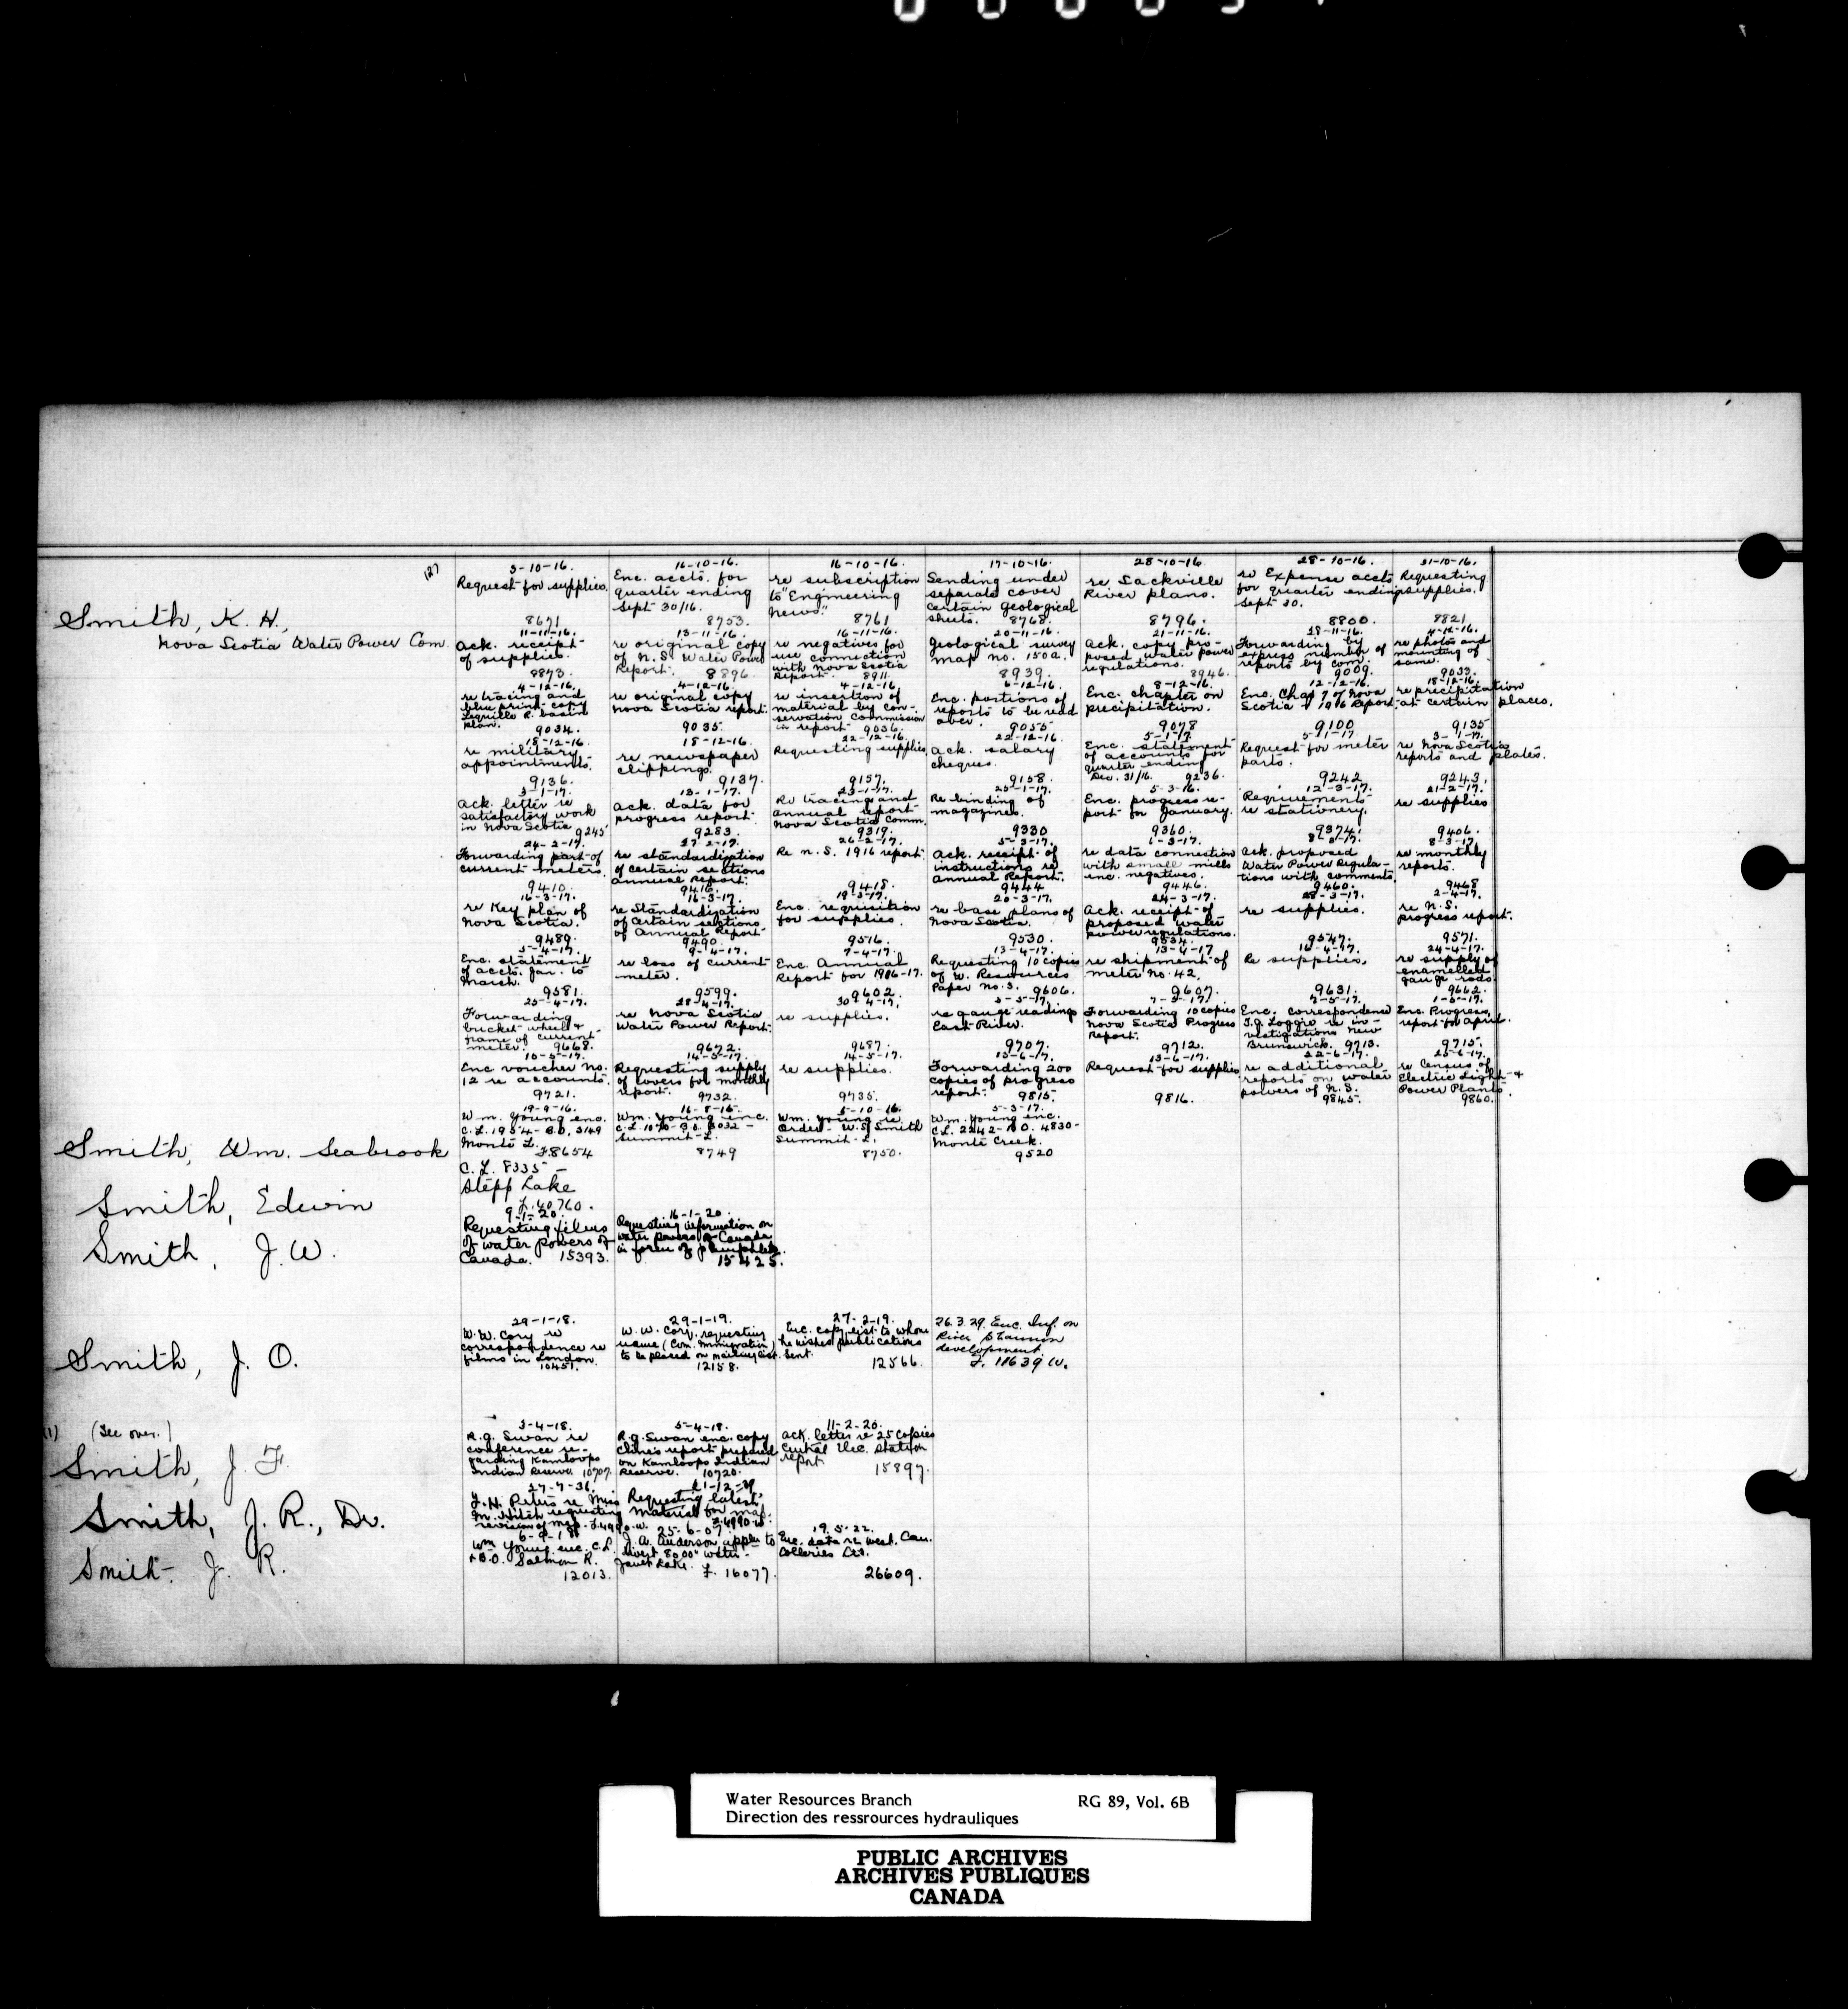 127
Smith, K. H.,
Nova Scotia Water Power Com.
5-10-16.
Request for supplies.
8671
16-10-16.
Enc. accts. for
quarter ending
Sept 30/16.
8753.
16-10-16.
re subscription
to "Engineering
News."
8761
17-10-16.
Sending under
separate cover
certain geological
sheets. 8768.
28-10-16
re Sackville
River plans.
8796.
28-10-16.
re Expense accts
for quarter ending
Sept 30.
8800.
31-10-16.
Requesting
supplies.
8821
11-11-16.
Ack. receipt
of supplies.
8873.
13-11-16.
re original copy
of N.S. Water Power
Report. 8896
16-11-16.
re negatives for
use connection
with Nova Scotia
Report. 8911.
20-11-16.
Geological survey
map no. 150a.
8939.
21-11-16.
Ack. copy pro-
posed water power
regulations.
8946.
28-11-16.
Forwarding by
express number of
reports by com.
9009.
4-12-16.
re photos and
mounting of
same.
9033.
4-12-16.
re tracing and
blue print copy
Lequille R. basin
plan.
9034.
4-12-16.
re original copy
Nova Scotia report.
9035.
4-12-16.
re insertion of
material by con-
servation commission
in report. 9036.
6-12-16.
Enc. portions of
reports to be read
over.
9055
8-12-16.
Enc. chapter on
precipitation.
9078
12-12-16.
Enc. Chap 7 of Nova
Scotia 1916 Report.
9100
18-12-16.
re precipitation
at certain places.
9135
18-12-16.
re military
appointments.
9136.
18-12-16.
re newspaper
clippings.
9137.
22-12-16.
Requesting supplies
9157.
22-12-16.
Ack. salary
cheques.
9158.
5-1-17.
Enc. statement
of accounts for
quarter ending
Dec. 31/16. 9236.
5-1-17.
Request for meter
parts.
9242
3-1-17.
re Nova Scotia
reports and plates.
9243.
3-1-17.
Ack. letter re
satisfactory work
in Nova Scotia
9245
13-1-17.
Ack. data for
progress report.
9283.
23-1-17.
Re tracing and
annual report
Nova Scotia Comm.
9319.
25-1-17.
Re binding of
magazines.
9330
5-3-16.
Enc. progress re-
port for January.
9360.
12-3-17.
Requirements
re stationery.
9374.
21-2-17.
re supplies
9406.
24-2-17.
Forwarding part of
current meters.
9410.
27-2-17.
re standardization
of certain sections
annual Report.
9416.
26-2-17.
Re N.S. 1916 report.
9418.
5-3-17.
Ack. receipt of
instructions re
Annual Report.
9444
6-3-17.
re data connection
with small mills
enc. negatives.
9446.
8-3-17.
Ack. proposed
Water Power Regula-
tions with comments.
9460.
8-3-17.
re monthly
reports.
9468
16-3-17.
re Key plan of
Nova Scotia.
9489.
16-3-17.
re Standardization
of certain sections
of Annual Report
9490.
19-3-17.
Enc. requisition
for supplies.
9516.
20-3-17.
re base plans of
Nova Scotia.
9530.
24-3-17.
Ack. receipt of
proposed water
power regulations.
9534.
28-3-17.
re supplies.
9547.
2-4-17.
re N.S.
progress report.
9571.
5-4-17.
Enc. statement
of accts. Jan. to
March.
9581.
9-4-17.
re loss of current
meter.
9599.
7-4-17.
Enc. Annual
Report for 1916-17.
9602.
13-4-17.
Requesting 10 copies
of W. Resources
Paper No. 3. 9606.
13-4-17
re shipment of
meter No. 42.
9607.
16-4-17.
Re supplies.
9631.
24-4-17.
re supply of
enamelled
gauge rods.
9662.
25-4-17.
Forwarding
bucket wheel &
name of current
meter. 9668.
28-4-17.
re Nova Scotia
Water Power Report.
9672.
30-4-17.
re supplies.
9687.
5-5-17.
re gauge readings
East River.
9707.
7-5-17.
Forwarding 10 copies
Nova Scotia Progress
Report.
9712.
7-5-17.
Enc. correspondence
T.G. Loggie re in-
vestigations New
Brunswick. 9713.
1-5-17.
Enc. Progress
report for April.
9715.
10-5-17.
Enc voucher no.
12 re accounts.
9721.
14-5-17.
Requesting supply
of covers for monthly
report.
9732.
14-5-17.
re supplies.
9735.
13-6-17.
Forwarding 200
copies of progress
report. 9815.
13-6-17.
Request for supplies
9816.
22-6-17.
re additional
reports on water
powers of N.S.
9845.
25-6-17.
re Census of
Electric Light &
Power Plants.
9860.
Smith, Wm. Seabrook
19-9-16.
Wm. Young enc.
C.L. 1954- B.O. 5149
Monte L.
F8654
16-8-16.
Wm. Young enc.
Summit L.
8749
5-10-16.
Wm. Young re
Order - W.S. Smith
Summit L.
8750.
5-3-17.
Wm. Young enc.
C.L. 2242- B.O. 4830-
Monte Creek.
9520
Smith, Edwin
C.L. 8335 -
Stepp Lake
F.40760.
Smith, J.W.
9-1-20.
Requesting films
of water powers of
Canada. 15393.
16-1-20.
Requesting information on
water powers of Canada
in form of pamphlets.
15425.
Smith, J. O.
29-1-18.
W.W. Cory re
correspondence re
films in London.
10451.
29-1-19.
W.W. Cory. requesting
name (Com. Immigration)
to be placed on mailing list.
12158.
27-2-19.
Enc. copy list to whom
he wished publications
sent.
12566.
26.3.29. Enc. Inf. on
River Shannon
development
F. 11639 W.
(1) (See over.)
Smith, J. F.
3-4-18.
R.G. Swan re
conference re-
garding Kamloops
Indian Reserve. 10707.
5-4-18.
R.G. Swan enc. copy
Cline's report prepared
on Kamloops Indian
Reserve. 10720.
11-2-20.
ack. letter re 25 copies
Central Elec. Station
report.
15897.
Smith, J. R., Dr.
27-7-36.
J.H. Peters re Miss
M. Hitch requesting
revision of map. F.4990-W.
21-12-39
Requesting latest
material for map.
F.4990-W.
Smith J. R.
6-9-18
Wm Young enc. C.L.
& B.O. Salmon R.
12013.
25-6-07
J.A. Anderson appln to
divert 8000" water -
Janet Lake. F. 16077.
19.5.22.
Enc. data re West. Can.
Colleries Ltd.
26609.
Water Resources Branch RG 89, Vol. 6B
Direction des ressrources hydrauliques
PUBLIC ARCHIVES
ARCHIVES PUBLIQUES
CANADA